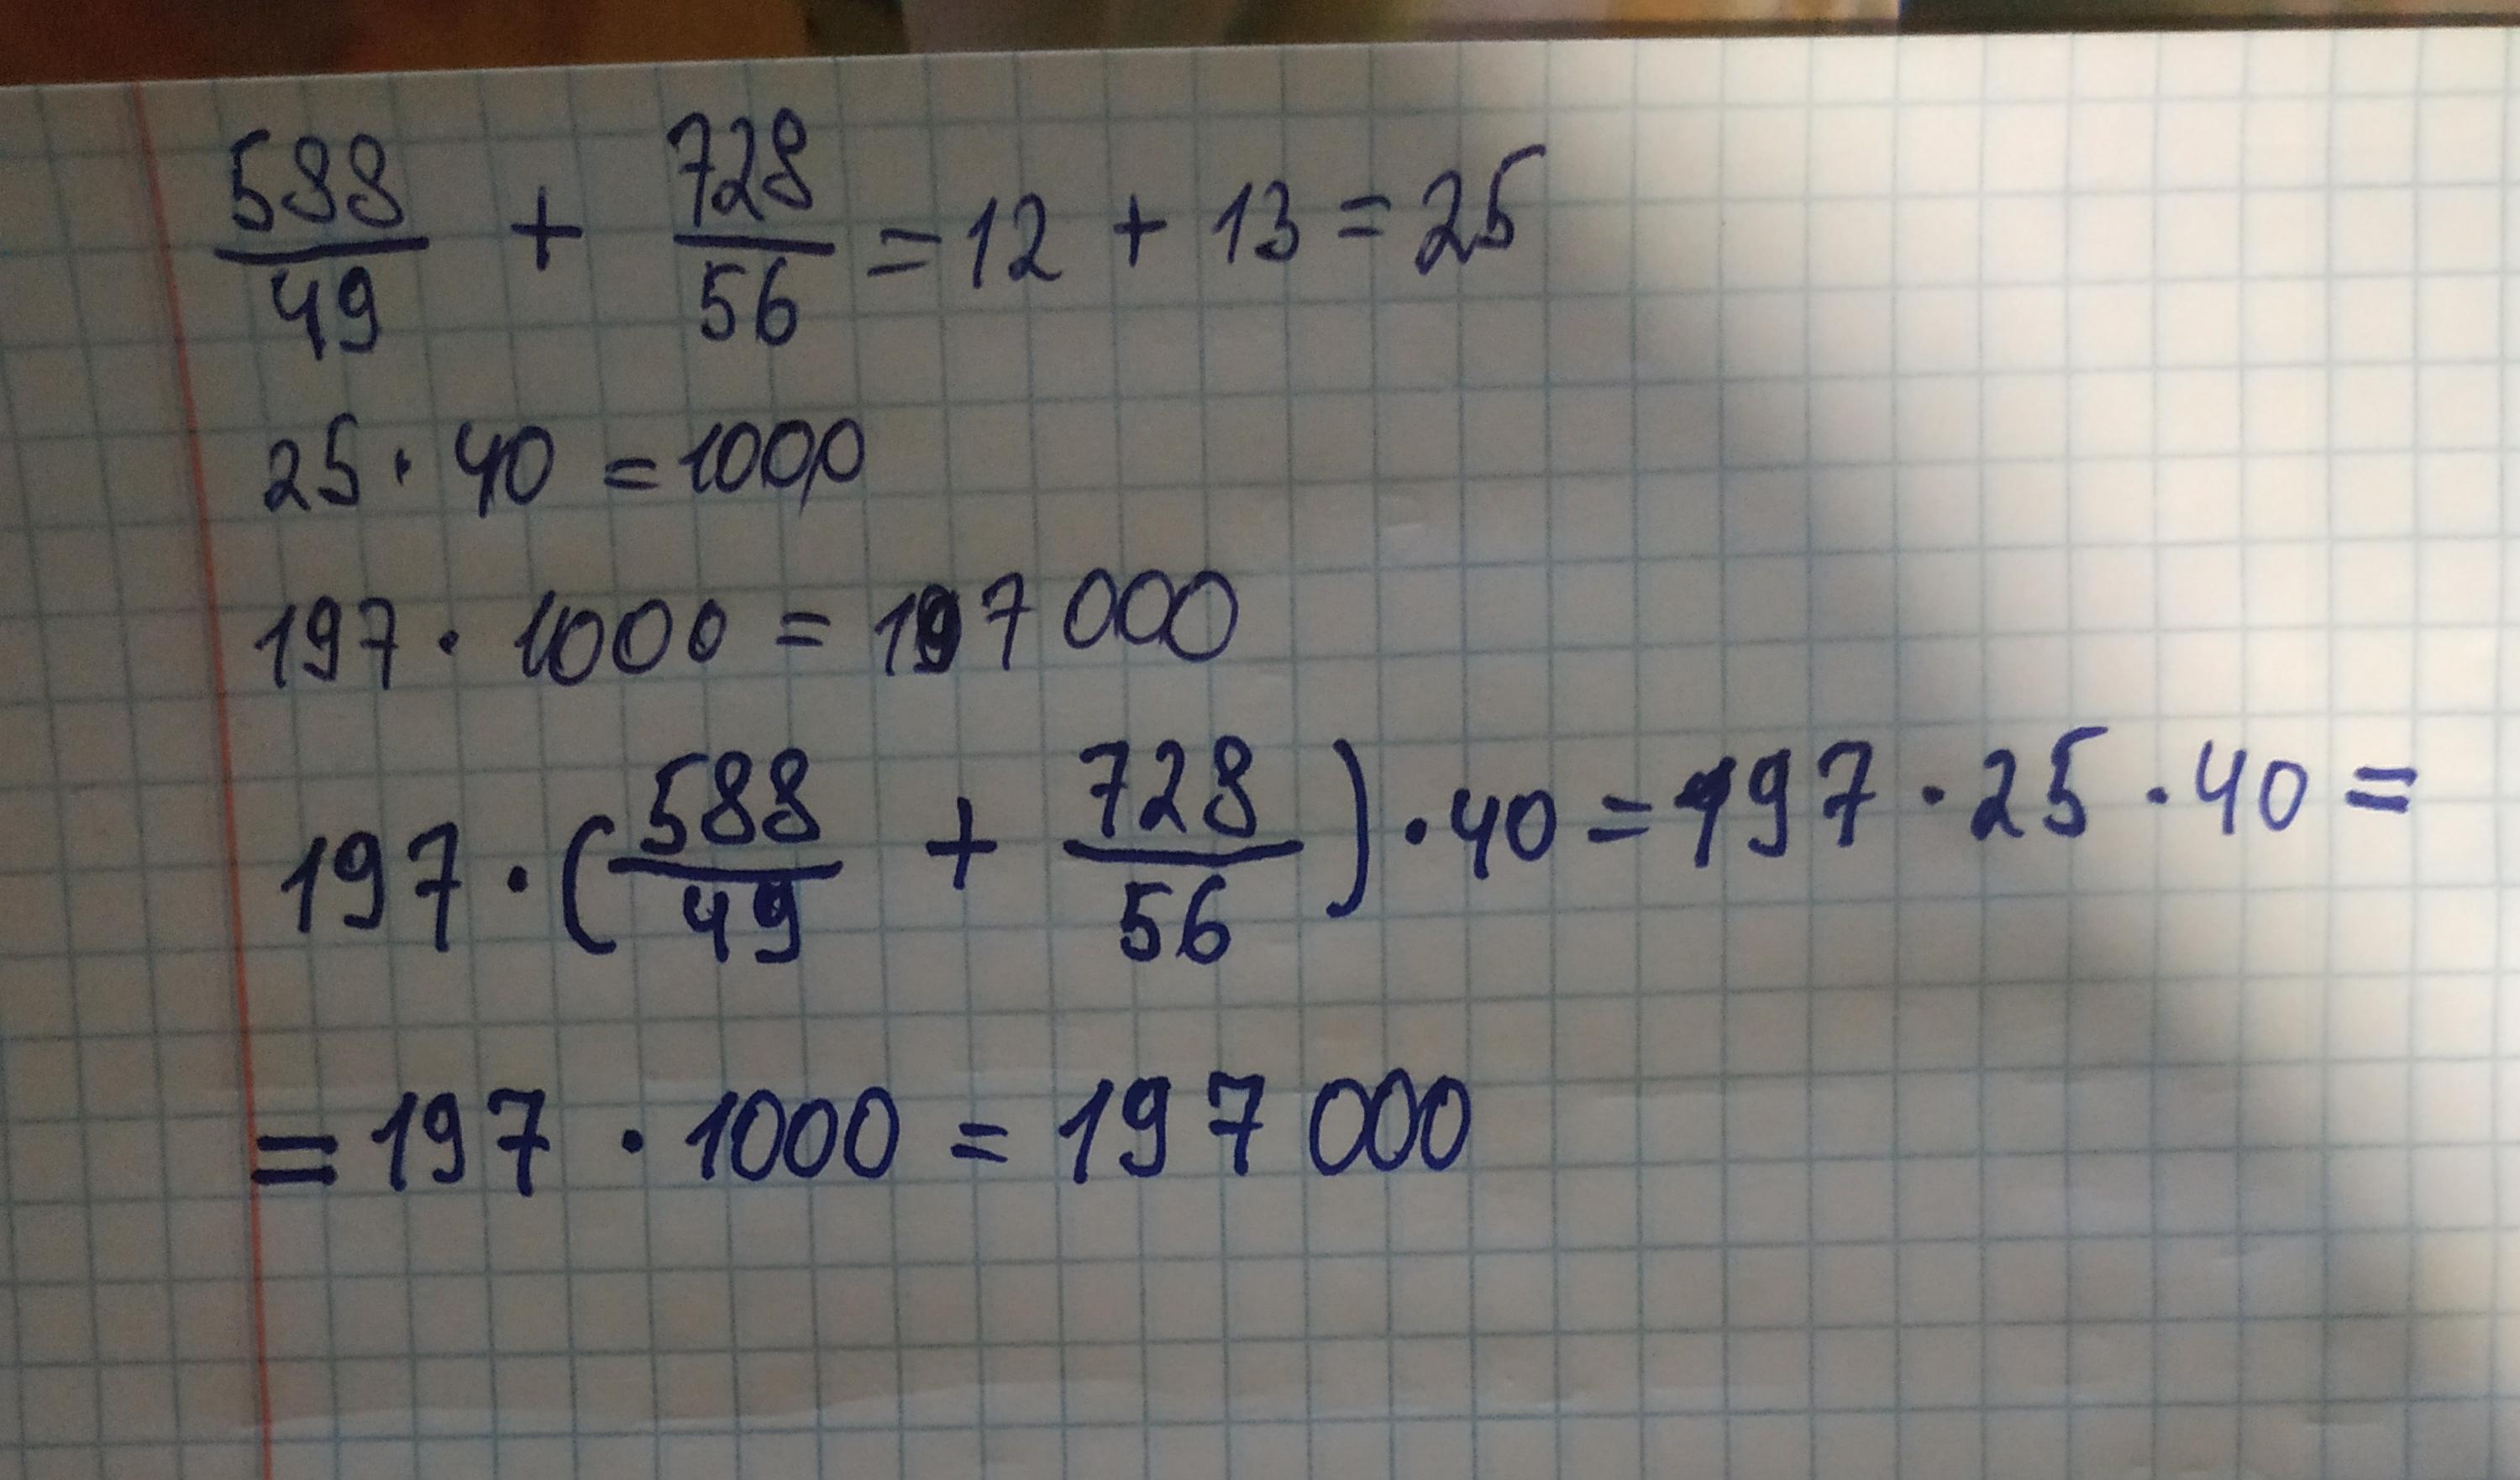 588/49 + 728/56 = 12 + 13 = 25
25 · 40 = 1000
197 · 1000 = 197 000
197 · (588/49 + 728/56) · 40 = 197 · 25 · 40 =
= 197 · 1000 = 197 000